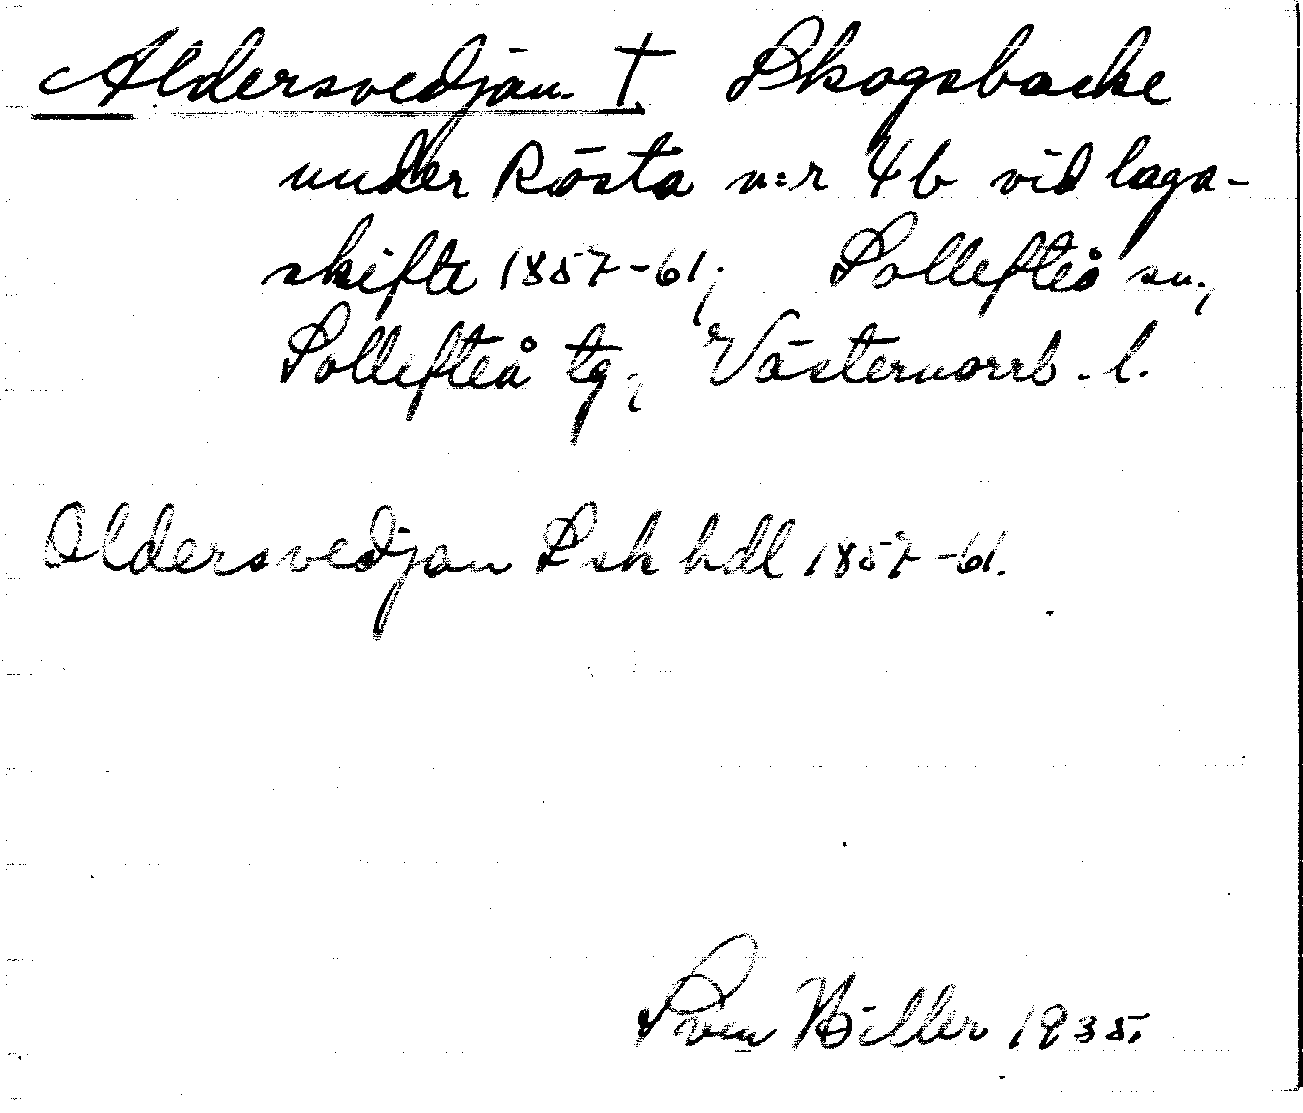 Åldersvedjan. † Skogsbacke
under Rösta n:r 4b vid laga-
skifte 1857-61; Sollefteå sn.,
Sollefteå tg., Västernorrl. l.
Oldersvedjan Lsk hdl 1857-61.
Sven Hiller 1935.